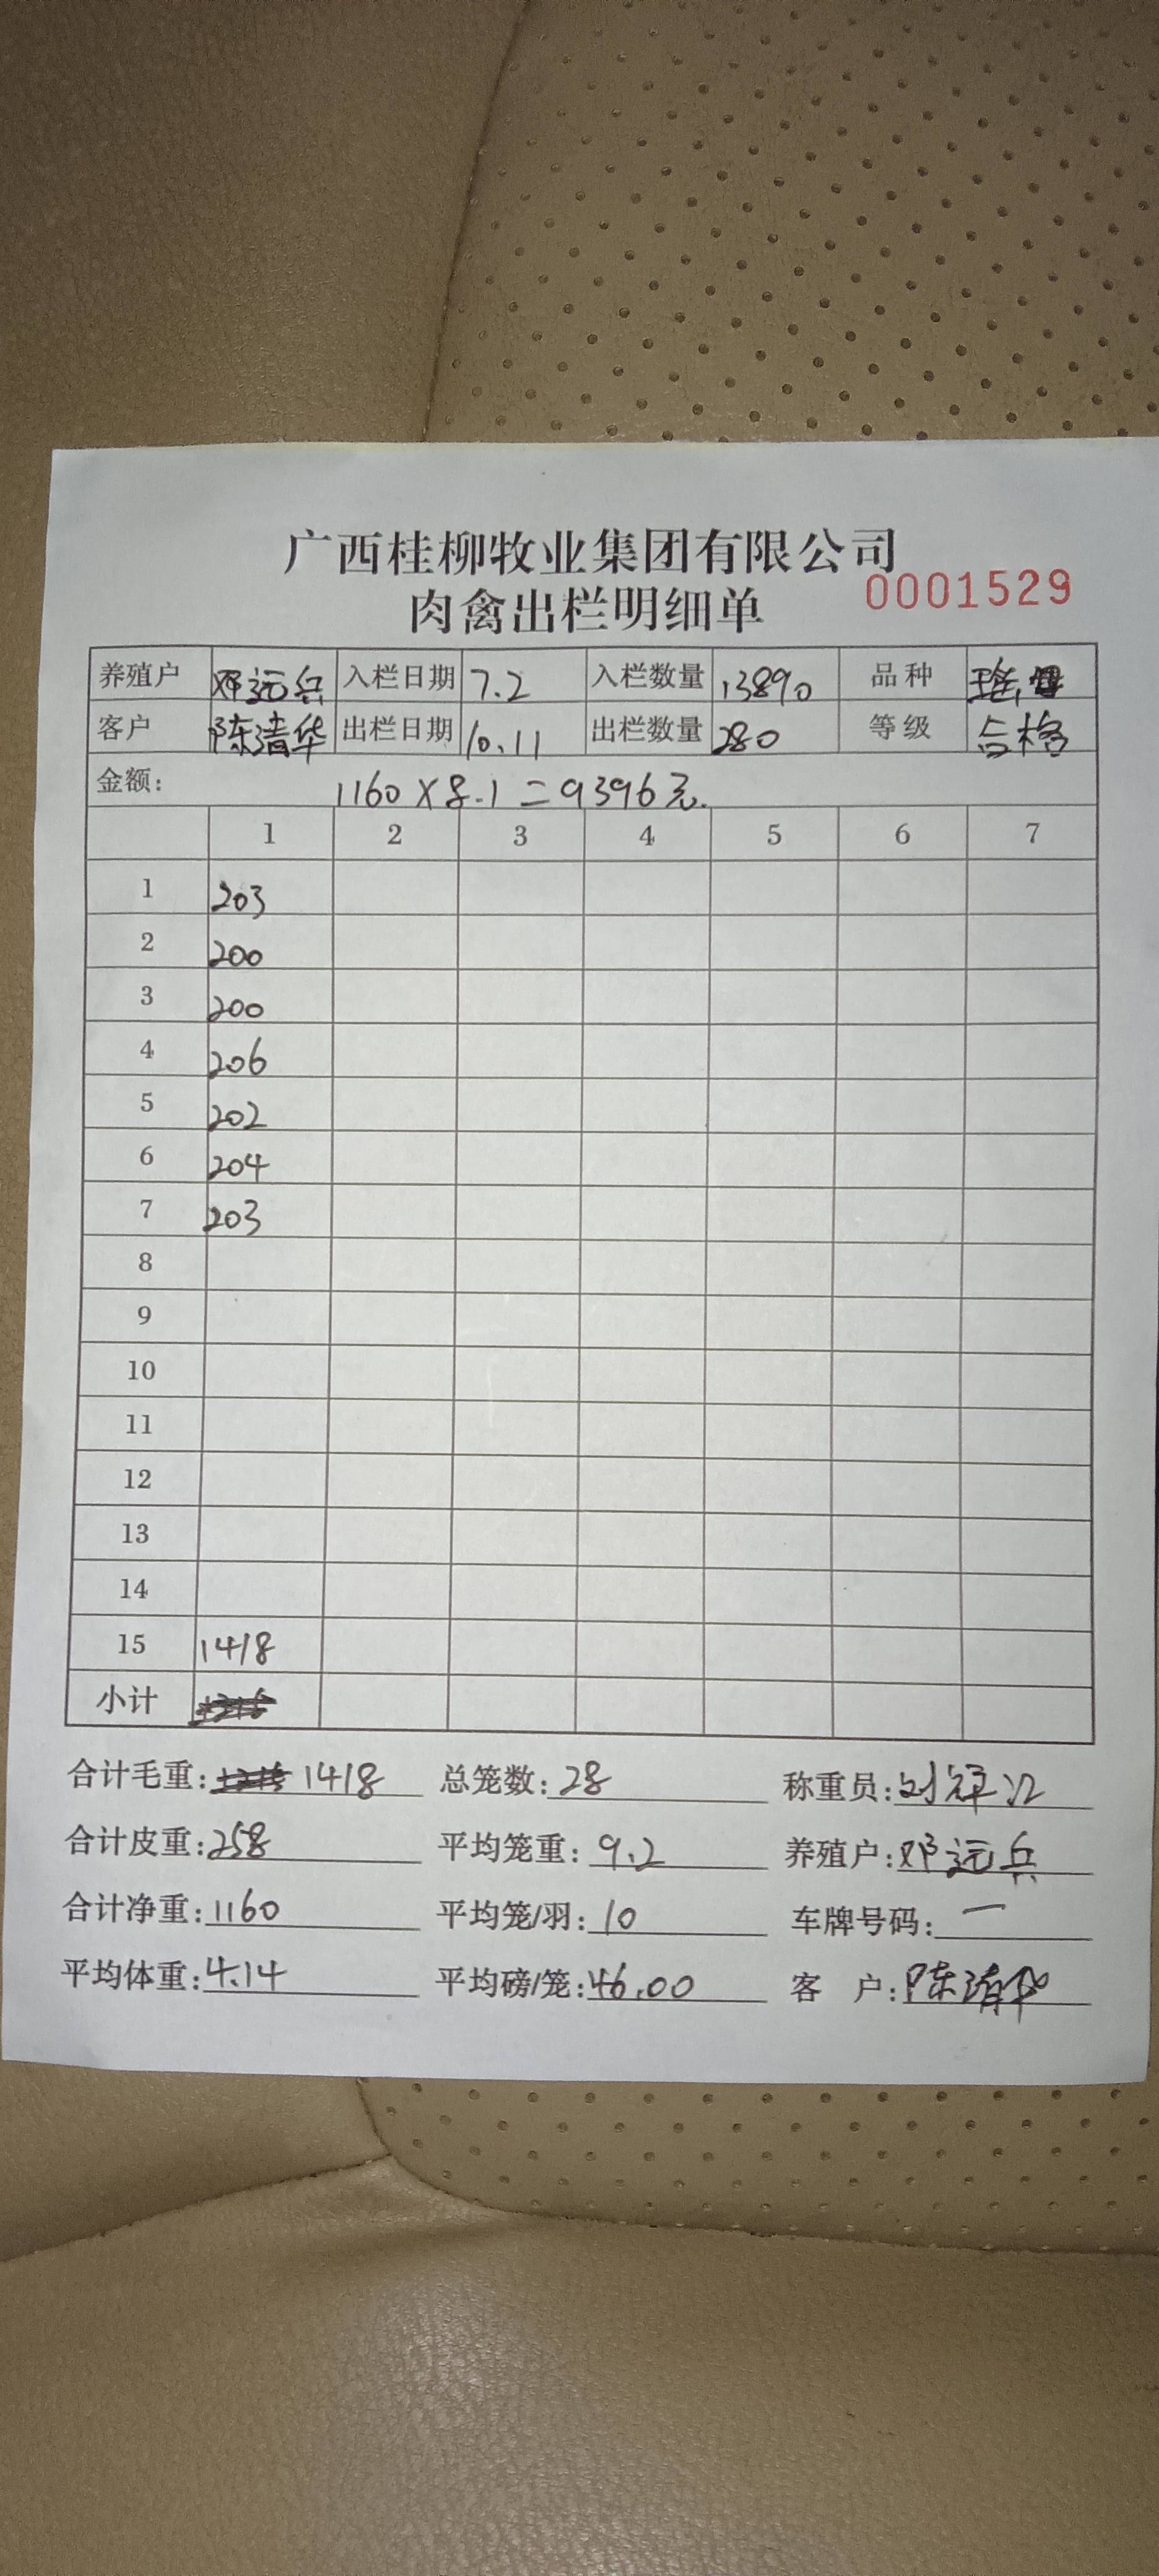 广西桂柳牧业集团有限公司
肉禽出栏明细单 0001529
养殖户 邓远兵 入栏日期 7.2 入栏数量 13890 品种
客户 陈清华 出栏日期 10.11 出栏数量 280 等级 合格
金额: 1160×8.1=9396元.
1 2 3 4 5 6 7
1 203
2 200
3 200
4 206
5 202
6 204
7 203
8
9
10
11
12
13
14
15 1418
小计
合计毛重: 1418 总笼数: 28 称重员: 刘
合计皮重: 258 平均笼重: 9.2 养殖户: 邓远兵
合计净重: 1160 平均笼/羽: 10 车牌号码: 一
平均体重: 4.14 平均磅/笼: 46.00 客 户: 陈清华